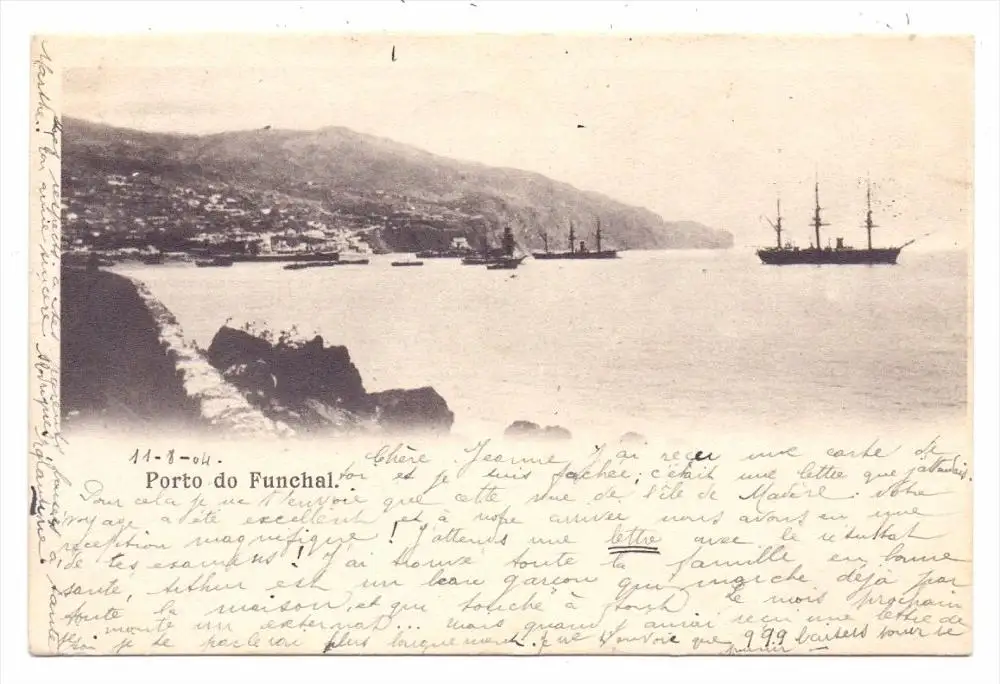 11-8-04.
Porto do Funchal.
Chère Jeanne J'ai reçu une carte de
toi et je suis fachée; c'était une lettre que j'attendais.
Pour cela je ne t'envoie que cette vue de l'île de Madère. Notre
voyage a été excellent et à notre arrivée nous avons eu une
réception magnifique! J'attends une lettre avec le résultat
de tes examens! J'ai trouvé toute la famille en bonne
santé, Arthur est un beau garçon qui marche déjà par
toute la maison, et qui touche à tout. Le mois prochain
monte un externat... mais quand j'aurai reçu une lettre de
toi je te parlerai plus longuement. Je ne t'envoie que 999 baisers pour te
punir —
Mes respects à tes parents
Marthe. Ton amie sincère